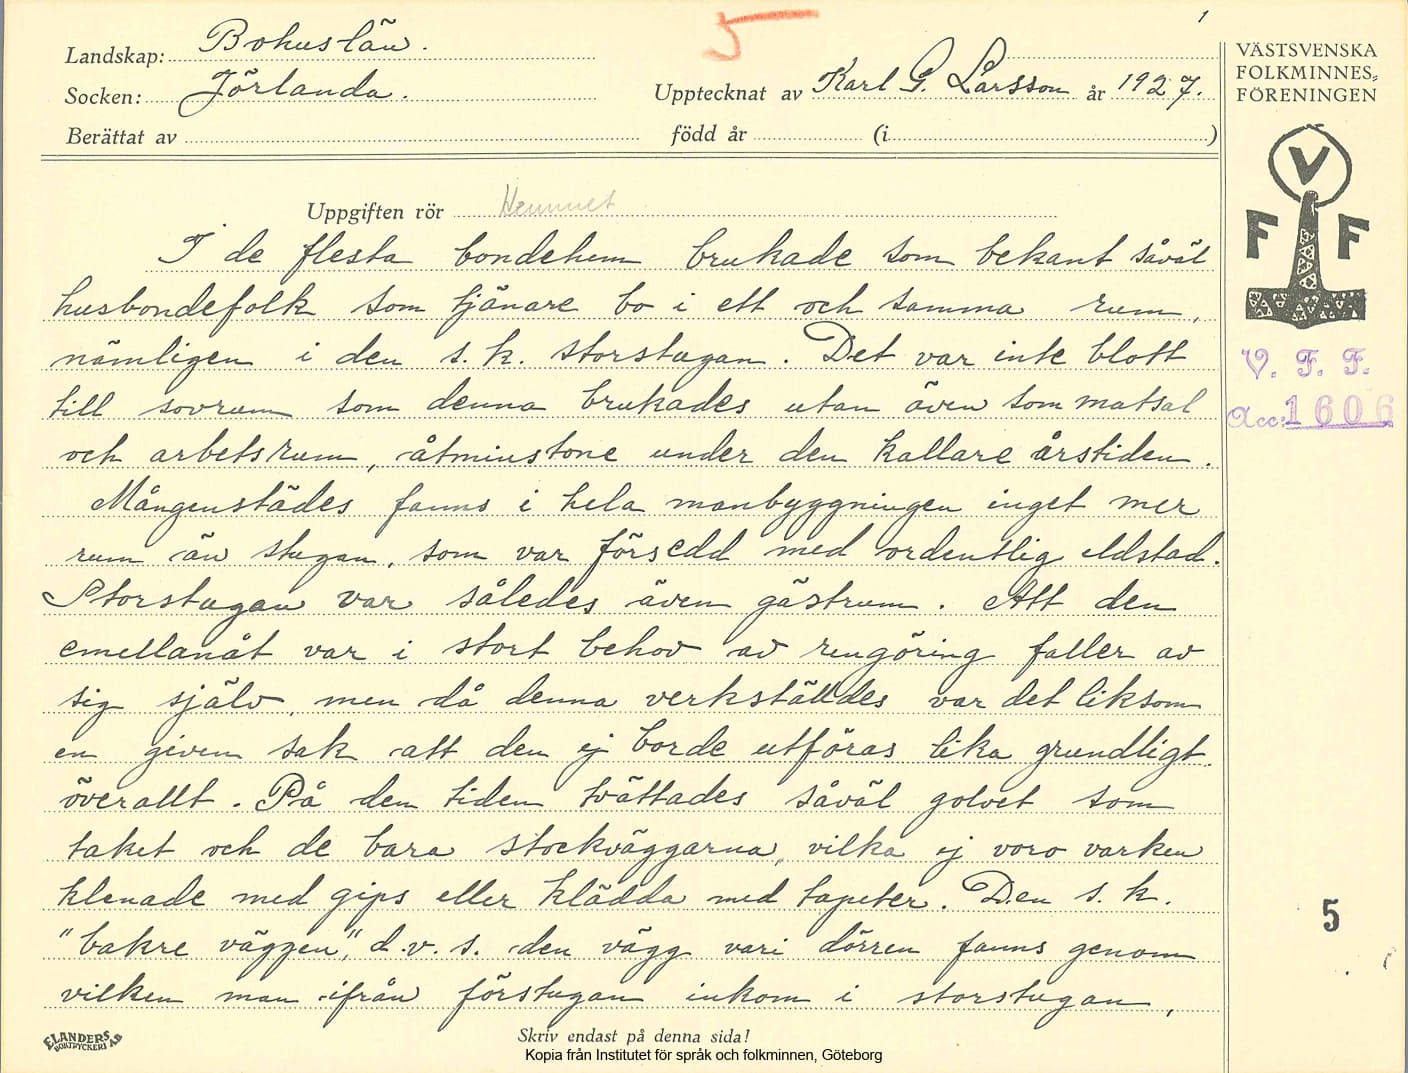 5
1
Landskap: Bohuslän.
Socken: Jörlanda.
Upptecknat av Karl G. Larsson år 1927.
Berättat av
född år (i )
VÄSTSVENSKA
FOLKMINNES-
FÖRENINGEN
V
F F
V. F. F.
Acc: 1606
Uppgiften rör Hemmet
I de flesta bondehem brukade som bekant såväl
husbondefolk som tjänare bo i ett och samma rum,
nämligen i den s.k. storstugan. Det var inte blott
till sovrum som denna brukades utan även som matsal
och arbetsrum, åtminstone under den kallare årstiden.
Mångenstädes fanns i hela manbyggningen inget mer
rum än stugan, som var försedd med ordentlig eldstad.
Storstugan var således även gästrum. Att den
emellanåt var i stort behov av rengöring faller av
sig själv, men då denna verkställdes var det liksom
en given sak att den ej borde utföras lika grundligt
överallt. På den tiden tvättades såväl golvet som
taket och de bara stockväggarna, vilka ej voro varken
klenade med gips eller klädda med tapeter. Den s.k.
"bakre väggen", d.v.s. den vägg vari dörren fanns genom
vilken man ifrån förstugan inkom i storstugan,
5
ELANDERS
BOKTRYCKERI AB
Skriv endast på denna sida!
Kopia från Institutet för språk och folkminnen, Göteborg